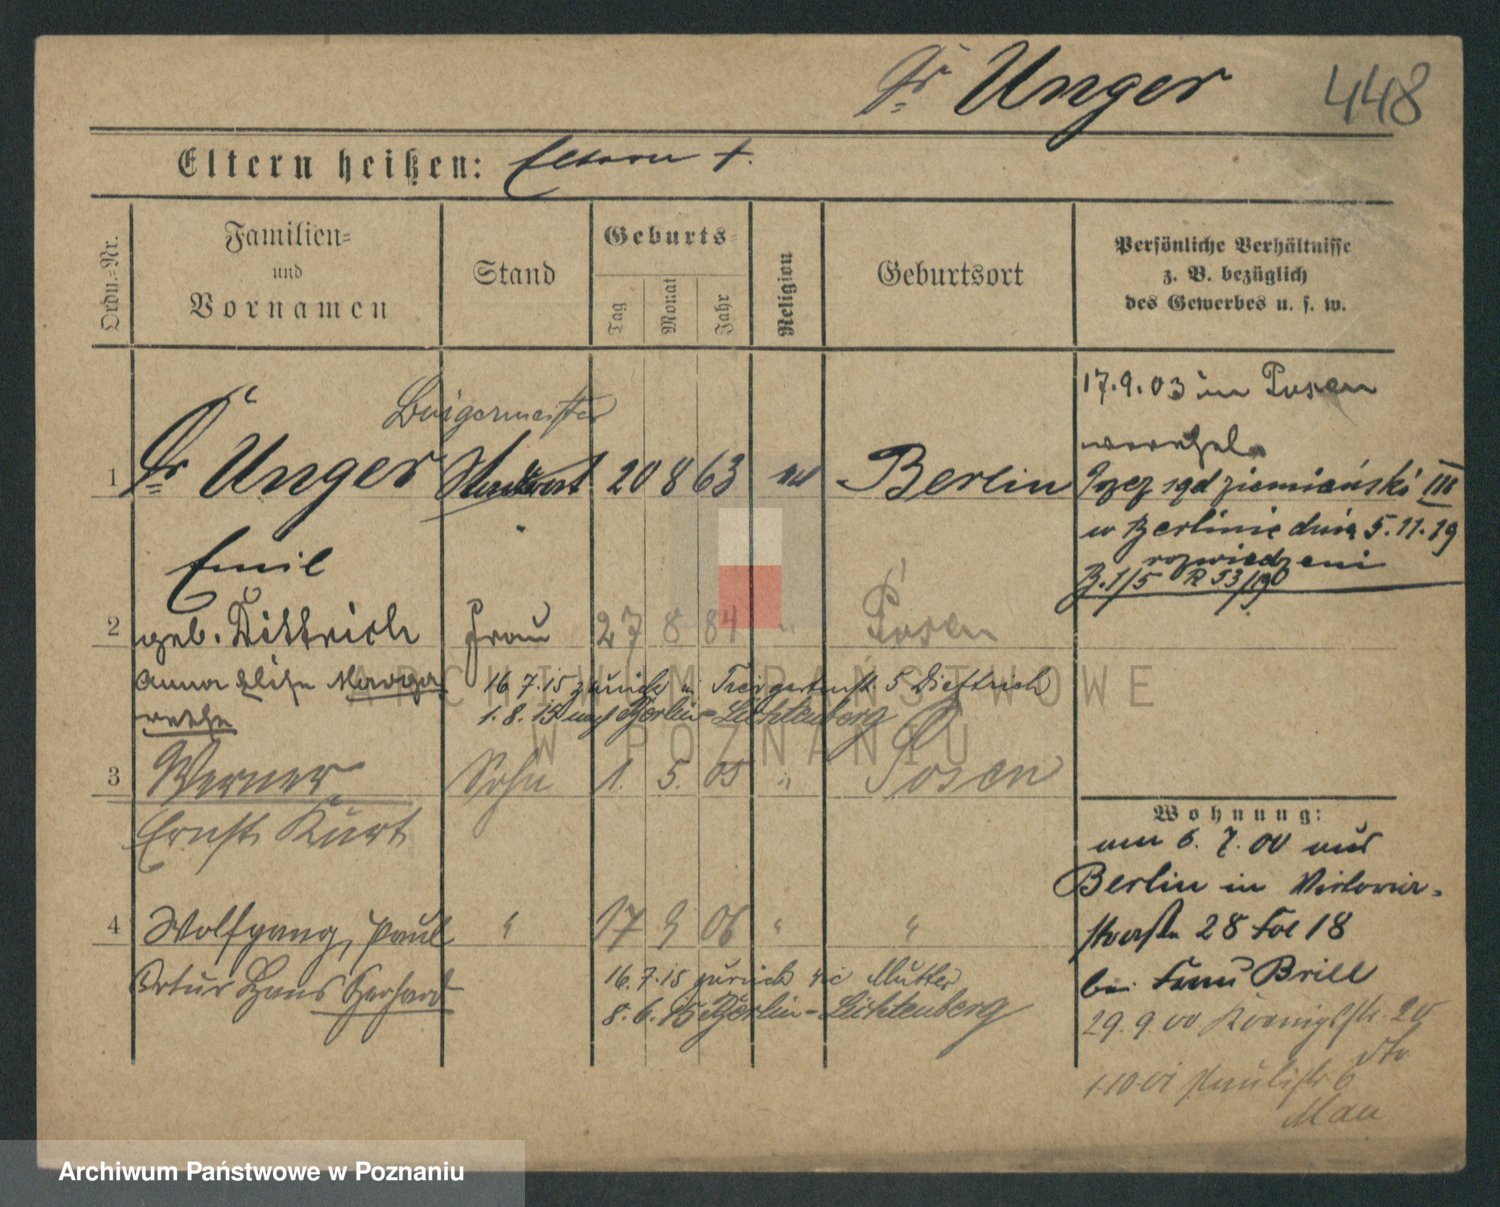 Dr Unger 448
Eltern heißen: Eltern †.
Ordn.-Nr.
Familien-
und
Vornamen
Stand
Geburts-
Tag
Monat
Jahr
Religion
Geburtsort
Persönliche Verhältnisse
z. B. bezüglich
des Gewerbes u. s. w.
17.9.03 in Posen
verehel.
Bürgermeister
1 Dr Unger Stadtrat 20 8 63 Berlin
Emil
Przez sąd ziemiański III
w Berlinie dnia 5.11.19
rozwiedzeni
2 geb. Dittrich Frau 27 8 84 " Posen
Anna Elise Marga
rethe
16.7.15 zurück Tiergartenstr 5 Diettrich
1.8.15 nach Berlin-Lichtenberg
3 Werner Sohn 1. 5. 05 " Posen
Ernst Kurt
4 Wolfgang, Paul " 17 9 06 " "
Artur Hans Gerhard
16.7.15 zurück sie Mutter
8.6.15 Berlin-Lichtenberg
Wohnung:
am 6.7.00 aus
Berlin in Victoria-
straße 28 18
bei Frau Brill
29.9.00 Königstr. 20
dto
1.10.01 Paulistr 6
ARCHIWUM PAŃSTWOWE
W POZNANIU
Archiwum Państwowe w Poznaniu